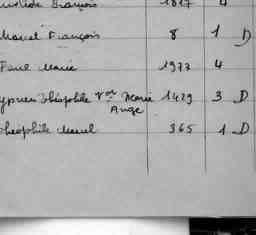 François 1817 4
Marcel François 8 1 D
Paul Marie 1977 4
Théophile Vor Marie 1429 3 D
Ange
Théophile Marcel 365 1 D